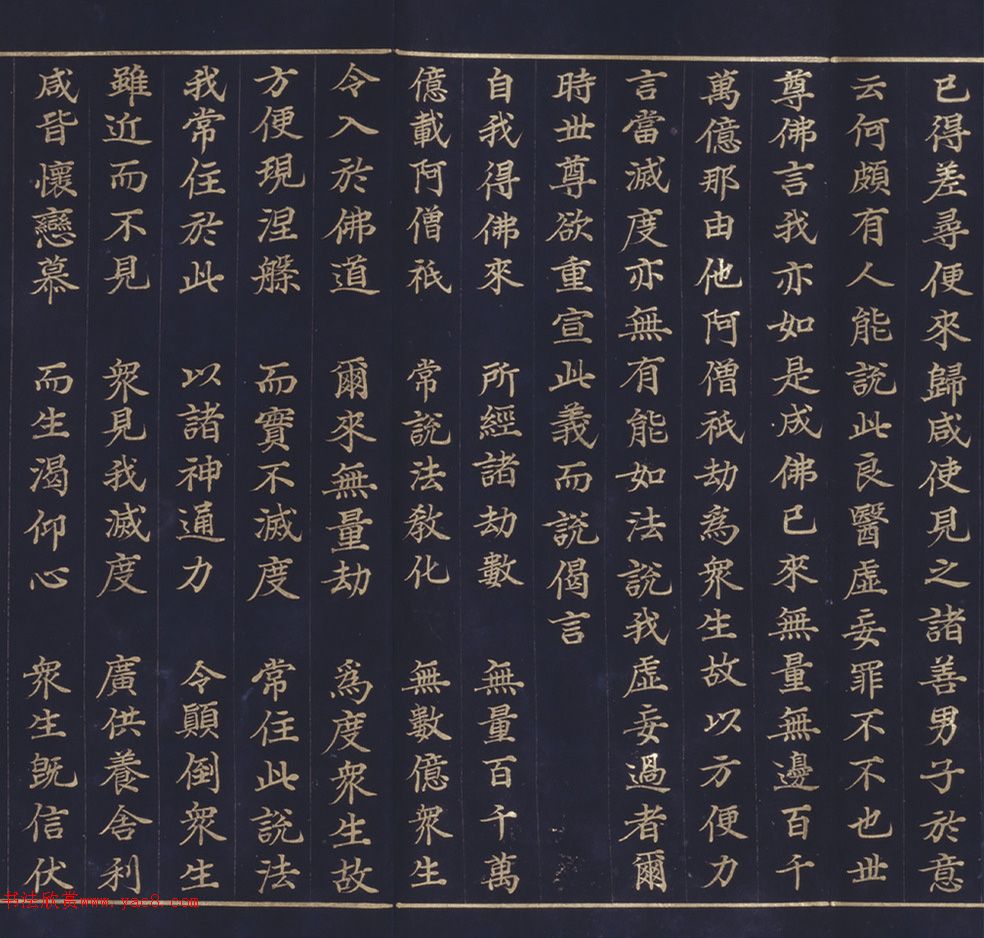 已得差尋便來歸咸使見之諸善男子於意
云何頗有人能說此良醫虛妄罪不不也世
尊佛言我亦如是成佛已來無量無邊百千
萬億那由他阿僧祇劫爲衆生故以方便力
言當滅度亦無有能如法說我虛妄過者爾
時世尊欲重宣此義而說偈言
自我得佛來 所經諸劫數 無量百千萬
億載阿僧祇 常說法教化 無數億衆生
令入於佛道 爾來無量劫 爲度衆生故
方便現涅槃 而實不滅度 常住此說法
我常住於此 以諸神通力 令顛倒衆生
雖近而不見 衆見我滅度 廣供養舍利
咸皆懷戀慕 而生渴仰心 衆生既信伏
书法欣赏www.yac8.com